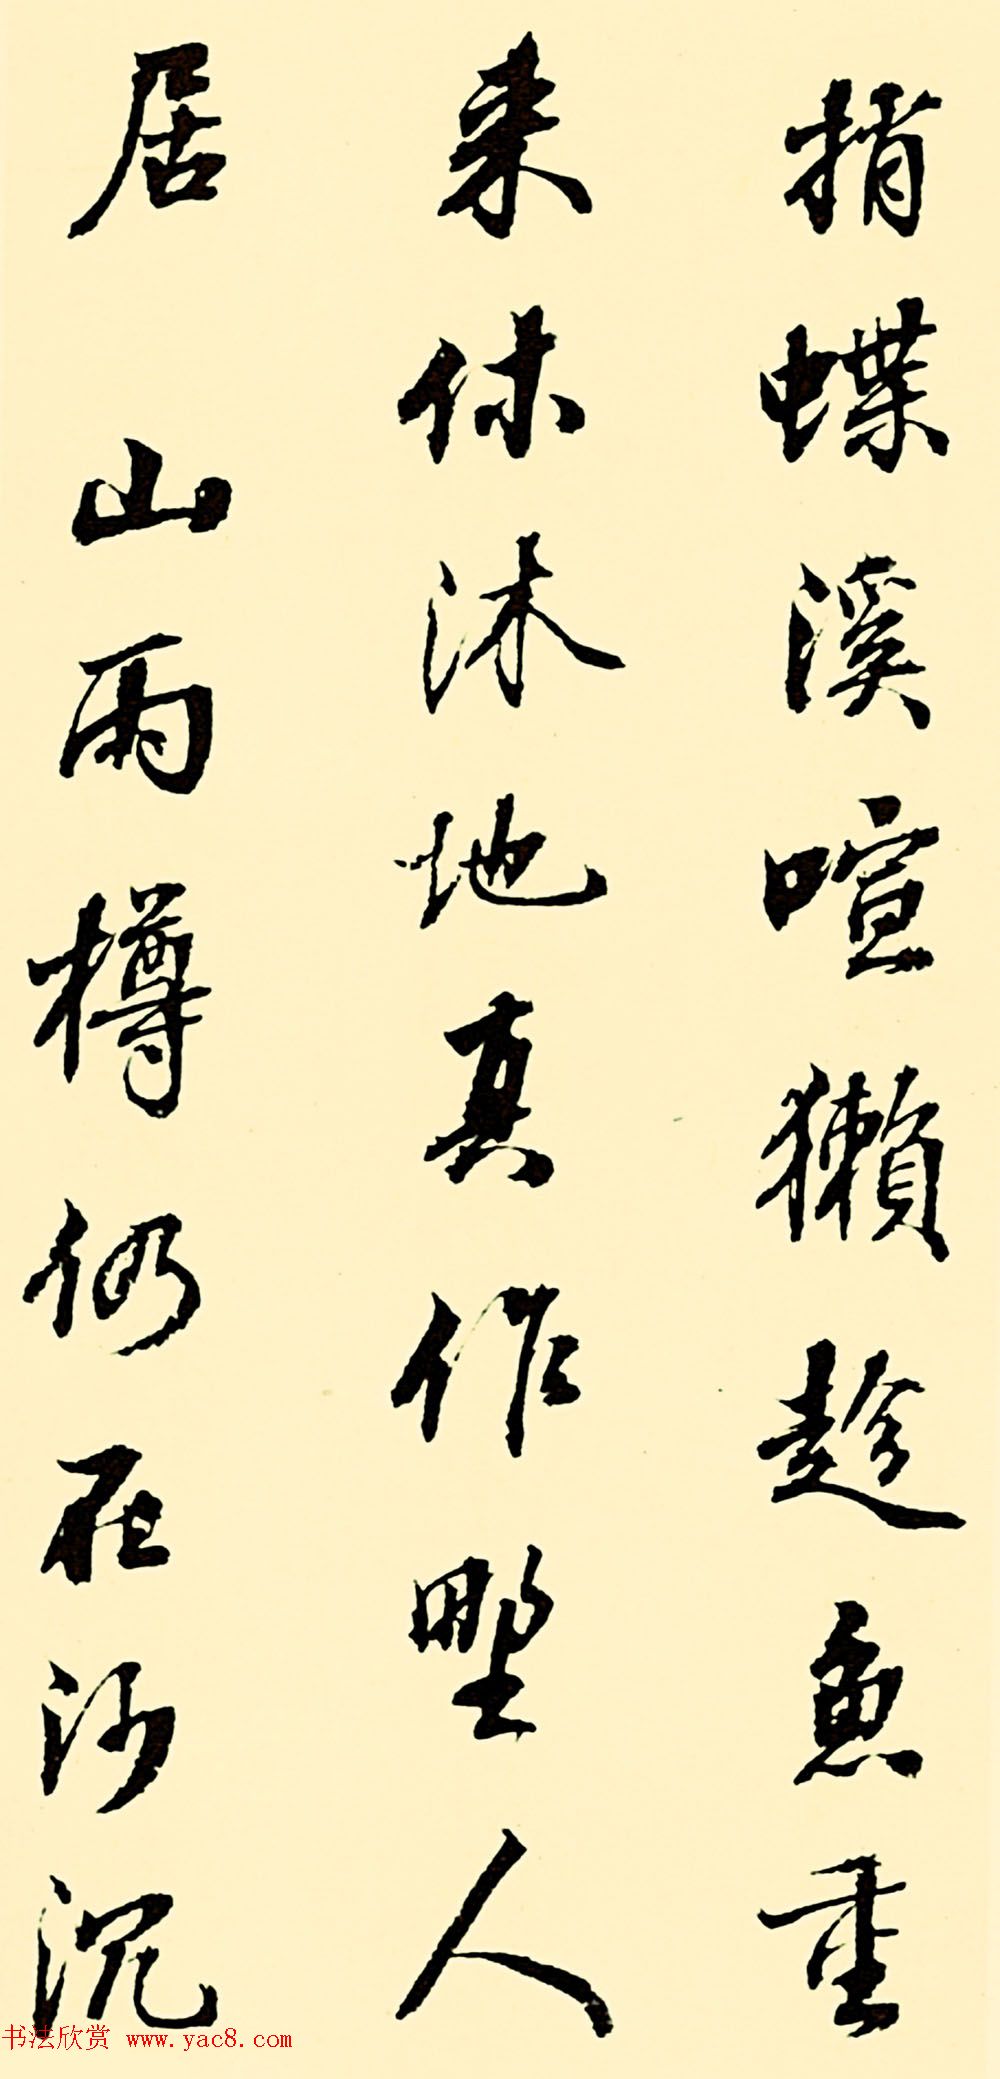 捎蝶溪喧獺趁魚重
来休沐地真作野人
居 山雨樽仍在沙沉
书法欣赏 www.yac8.com